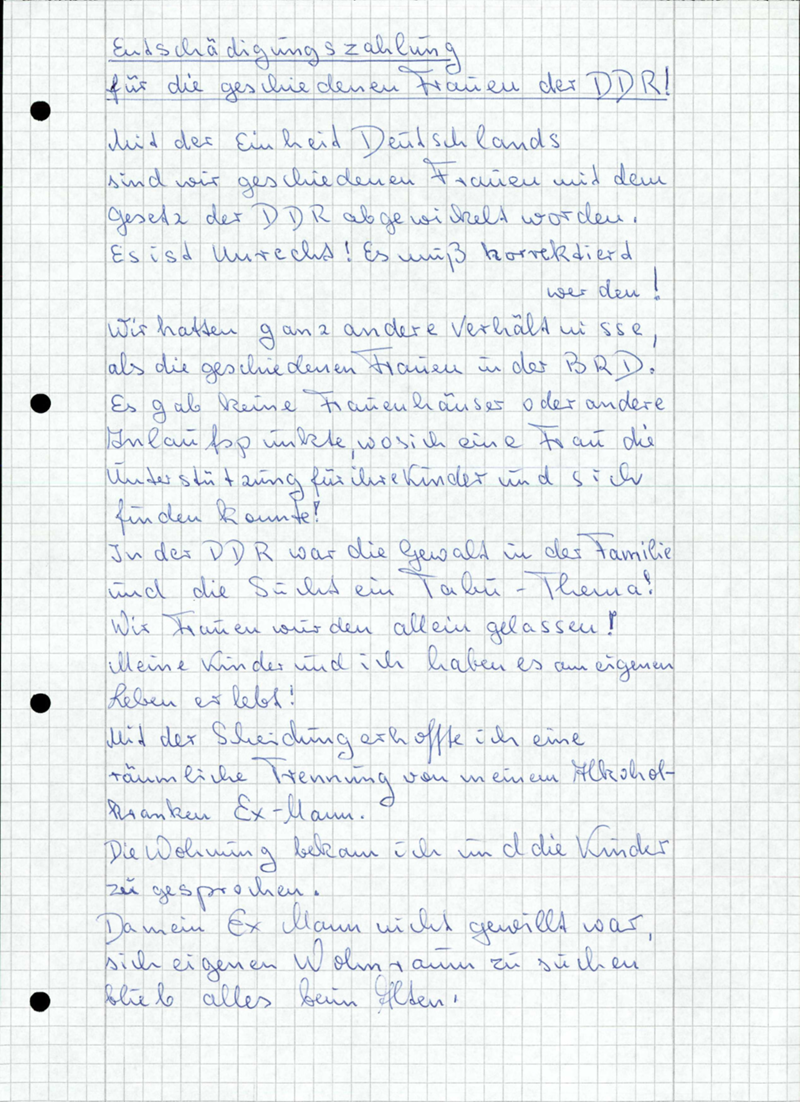 Entschädigungszahlung
für die geschiedenen Frauen der DDR!
Mit der Einheit Deutschlands
sind wir geschiedenen Frauen mit dem
Gesetz der DDR abgewickelt worden.
Es ist Unrecht! Es muß korrektierd
werden!
Wir hatten ganz andere Verhältnisse,
als die geschiedenen Frauen in der BRD.
Es gab keine Frauenhäuser oder andere
Anlaufspunkte, wo sich eine Frau die
Unterstützung für ihre Kinder und sich
finden konnte!
In der DDR war die Gewalt in der Familie
und die Sucht ein Tabu-Thema!
Wir Frauen wurden allein gelassen!
Meine Kinder und ich haben es am eigenen
Leben erlebt!
Mit der Scheidung erhoffte ich eine
räumliche Trennung von meinem Alkohol-
kranken Ex-Mann.
Die Wohnung bekam ich und die Kinder
zu gesprochen.
Da mein Ex Mann nicht gewillt war,
sich eigenen Wohnraum zu suchen
blieb alles beim Alten.